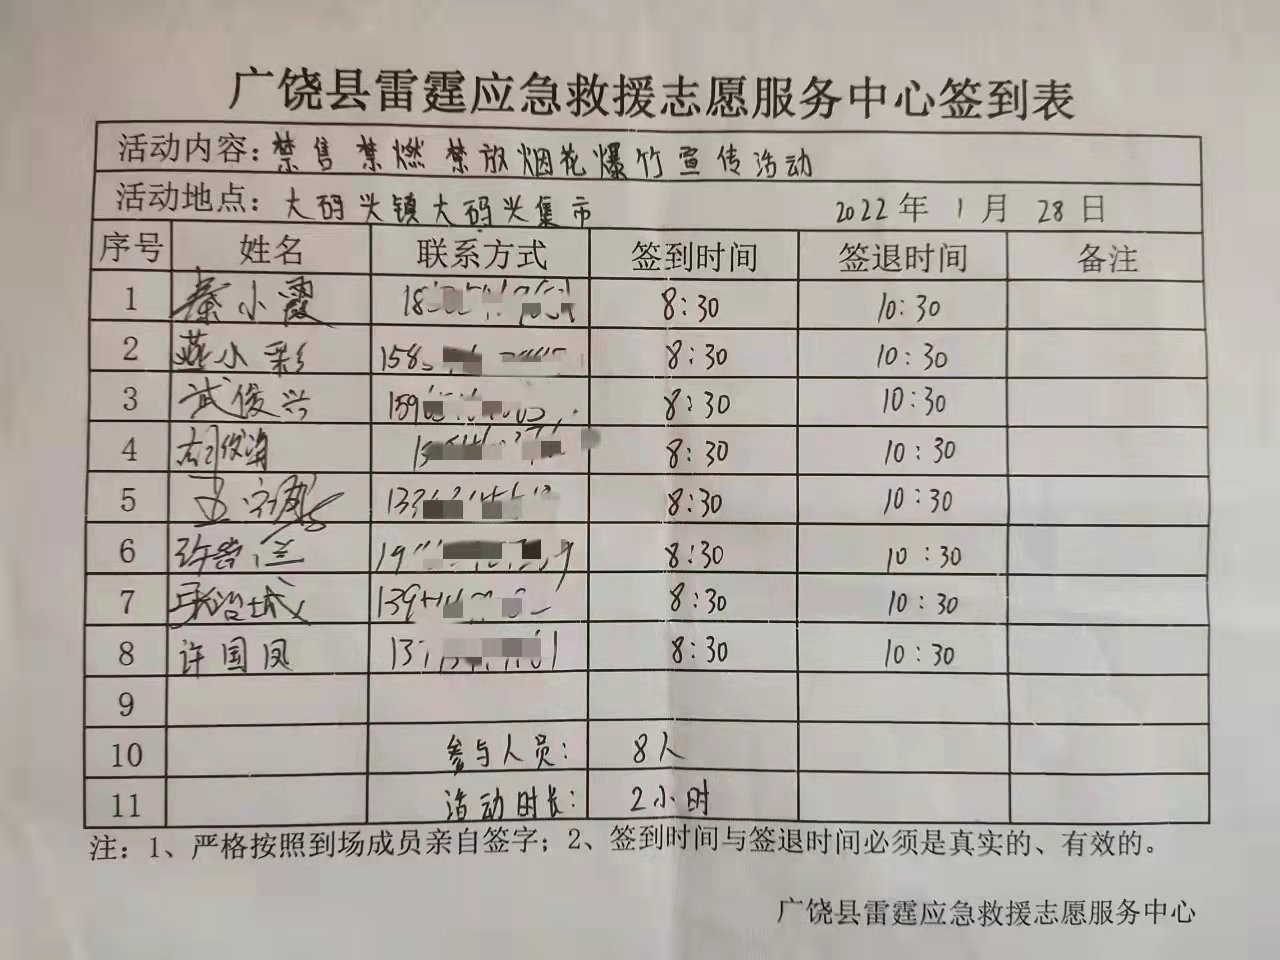 广饶县雷霆应急救援志愿服务中心签到表
活动内容：禁售禁燃禁放烟花爆竹宣传活动
活动地点：大码头镇大码头集市 2022年1月28日
序号 姓名 联系方式 签到时间 签退时间 备注
1 秦小霞 8:30 10:30
2 燕小彩 158 8:30 10:30
3 武俊兴 159 8:30 10:30
4 8:30 10:30
5 133 8:30 10:30
6 8:30 10:30
7 139 8:30 10:30
8 许国凤 8:30 10:30
9
10 参与人员： 8人
11 活动时长： 2小时
注：1、严格按照到场成员亲自签字；2、签到时间与签退时间必须是真实的、有效的。
广饶县雷霆应急救援志愿服务中心